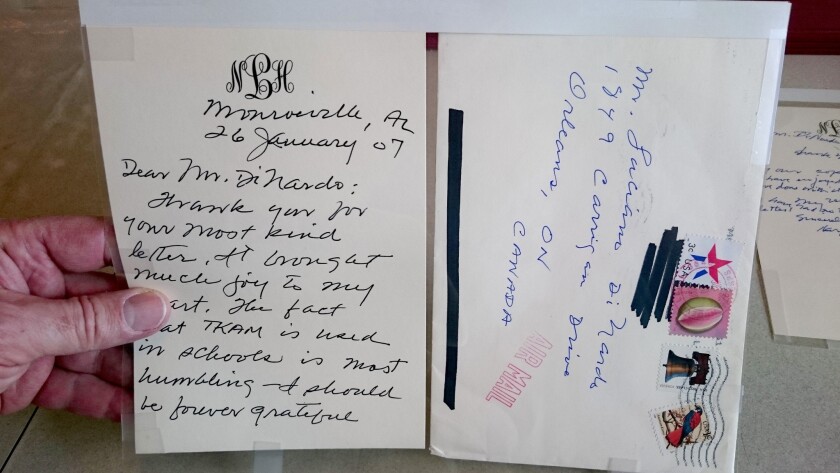 NLH
Monroeville, AL
26 January 07
Dear Mr. DiNardo:
Thank you for
your most kind
letter. It brought
much joy to my
art. The fact
at TKAM is used
in schools is most
humbling – I should
be forever grateful
Mr. Luciano Di Nardo
1849 Carrigan Drive
Orleans, ON
CANADA
AIR MAIL